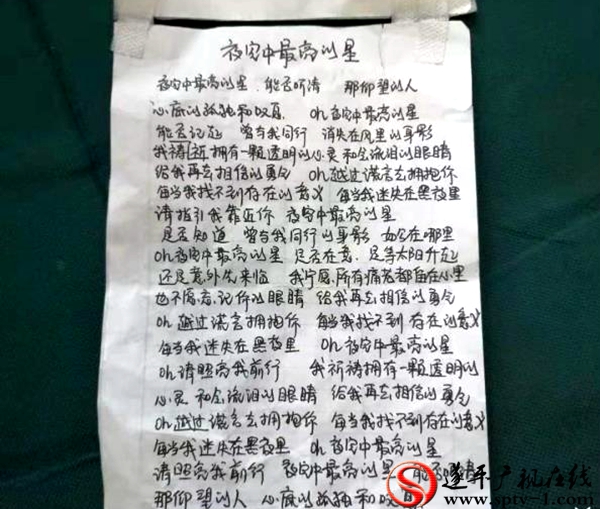 夜空中最亮的星
夜空中最亮的星 能否听清 那仰望的人
心底的孤独和叹息 Oh夜空中最亮的星
能否记起 曾与我同行 消失在风里的身影
我祷祈拥有一颗透明的心灵和会流泪的眼睛
给我再去相信的勇令 Oh越过谎言去拥抱你
每当我找不到存在的意义 每当我迷失在黑夜里
请指引我靠近你 夜空中最亮的星
是否知道 曾与我同行的身影 如今在哪里
Oh夜空中最亮的星 是否在意 是等太阳升起
还是意外先来临 我宁愿所有痛苦都留在心里
也不愿忘记你的眼睛 给我再去相信的勇令
Oh 越过谎言去拥抱你 每当我找不到存在的意义
每当我迷失在黑夜里 Oh夜空中最亮的星
Oh请照亮我前行 我祈祷拥有一颗透明的
心灵 和会流泪的眼睛 给我再去相信的勇令
Oh越过谎言去拥抱你 每当我找不到存在的意义
每当我迷失在黑夜里 Oh夜空中最亮的星
请照亮我前行 夜空中最亮的星 能否听清
那仰望的人 心底的孤独和叹息
遂平广视在线
www.sptv-1.com